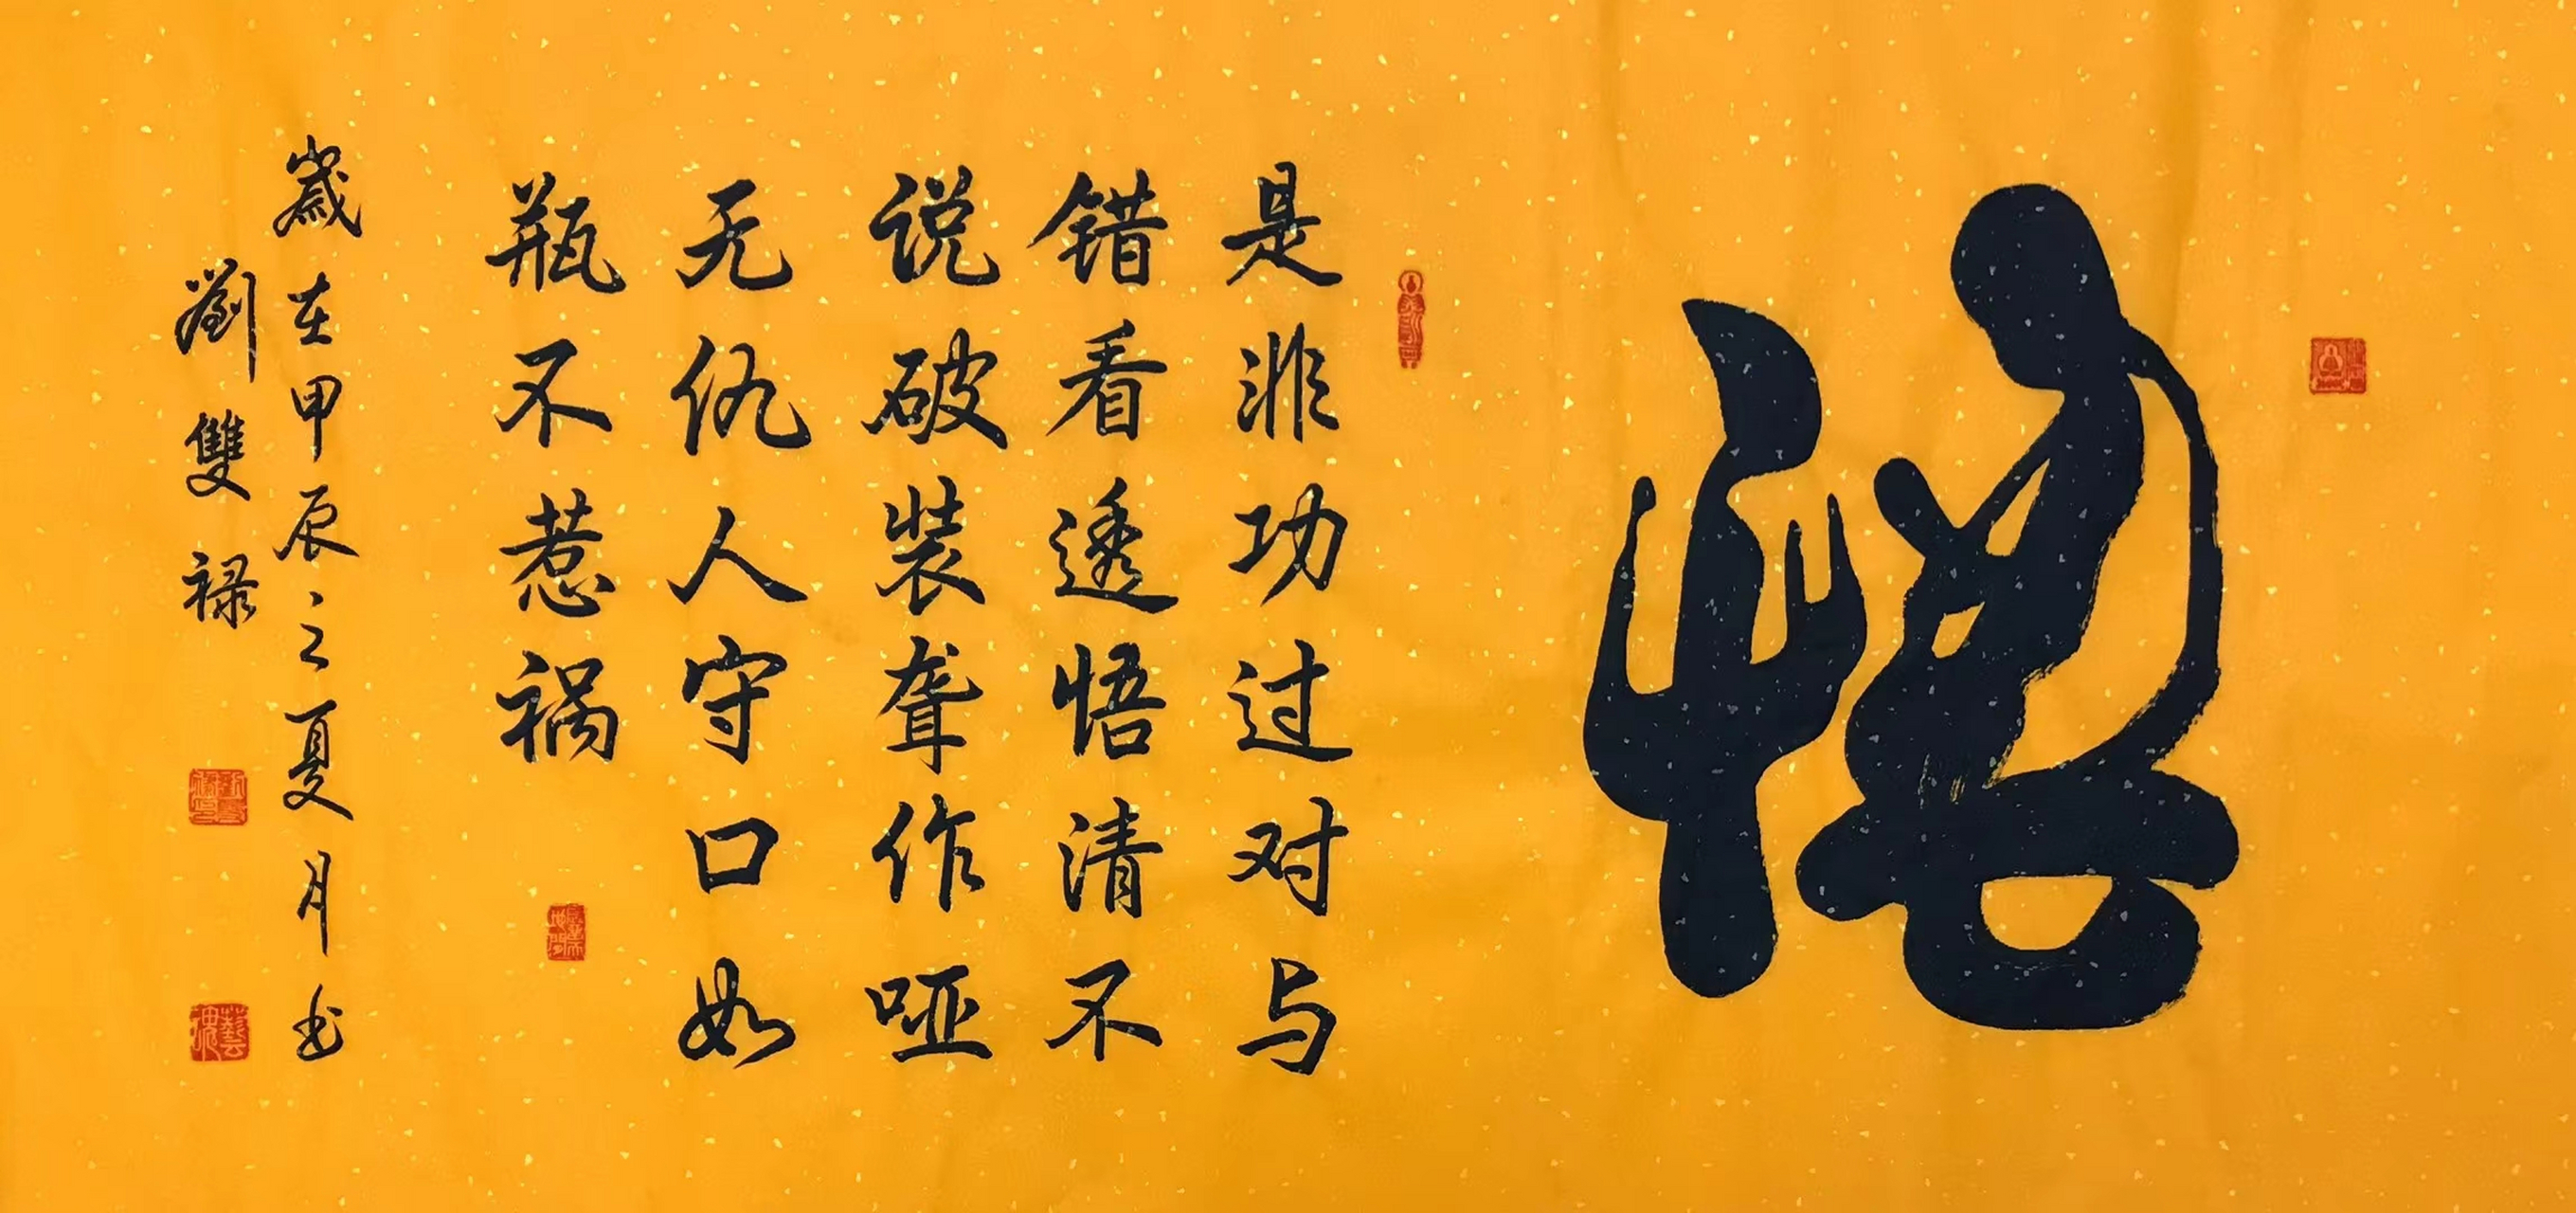 悟
是非功过对与
错看透悟清不
说破装聋作哑
无仇人守口如
瓶不惹祸
歲在甲辰之夏月书
劉雙禄